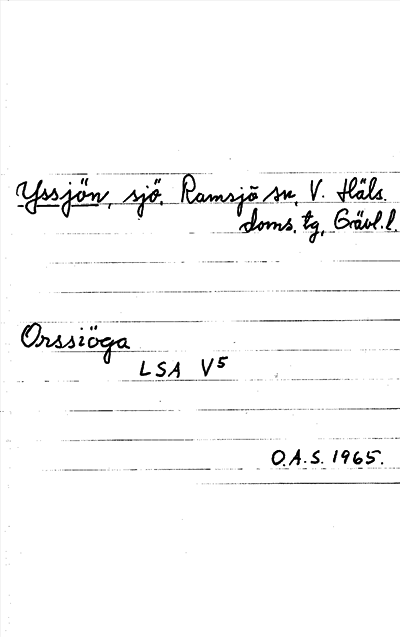 Yssjön, sjö, Ramsjö sn, V. Häls.
doms. tg, Gävl. l.
Orssiöga
LSA V5
O.A.S. 1965.